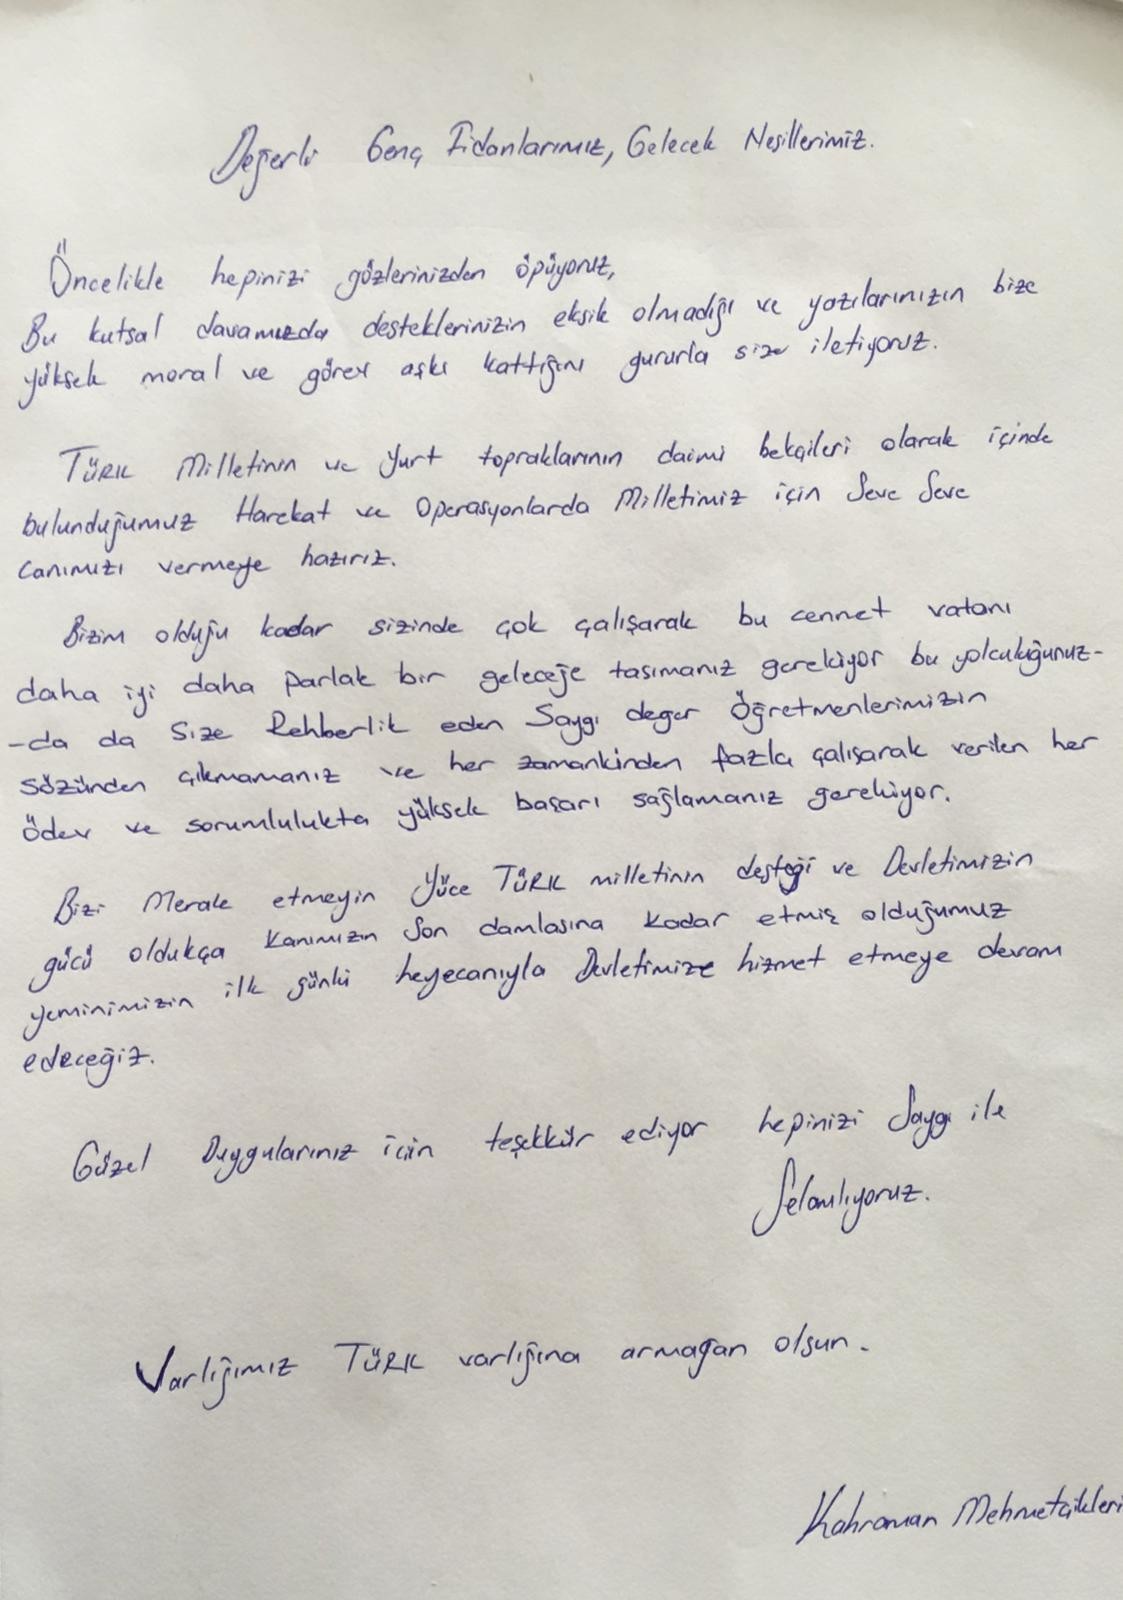 Değerli Genç Fidanlarımız, Gelecek Nesillerimiz.
Öncelikle hepinizi gözlerinizden öpüyoruz,
Bu kutsal davamızda desteklerinizin eksik olmadığı ve yazılarınızın bize
yüksek moral ve görev aşkı kattığını gururla size iletiyoruz.
TÜRK Milletinin ve Yurt topraklarının daimi bekçileri olarak içinde
bulunduğumuz Harekat ve Operasyonlarda Milletimiz için Seve Seve
canımızı vermeye hazırız.
Bizim olduğu kadar sizinde çok çalışarak bu cennet vatanı
daha iyi daha parlak bir geleceğe tasımanız gerekiyor bu yolculuğunuz-
-da da Size Rehberlik eden Saygı değer Öğretmenlerimizin
sözünden çıkmamanız ve her zamankinden fazla çalışarak verilen her
ödev ve sorumlulukta yüksek başarı sağlamanız gerekiyor.
Bizi Merak etmeyin Yüce TÜRK milletinin desteği ve Devletimizin
gücü oldukça Kanımızın Son damlasına Kadar etmiş olduğumuz
yeminimizin ilk günkü heyecanıyla Devletimize hizmet etmeye devam
edeceğiz.
Güzel Duygularınız için teşekkür ediyor hepinizi Saygı ile
Selamlıyoruz.
Varlığımız TÜRK varlığına armağan olsun.
Kahraman Mehmetçikleri